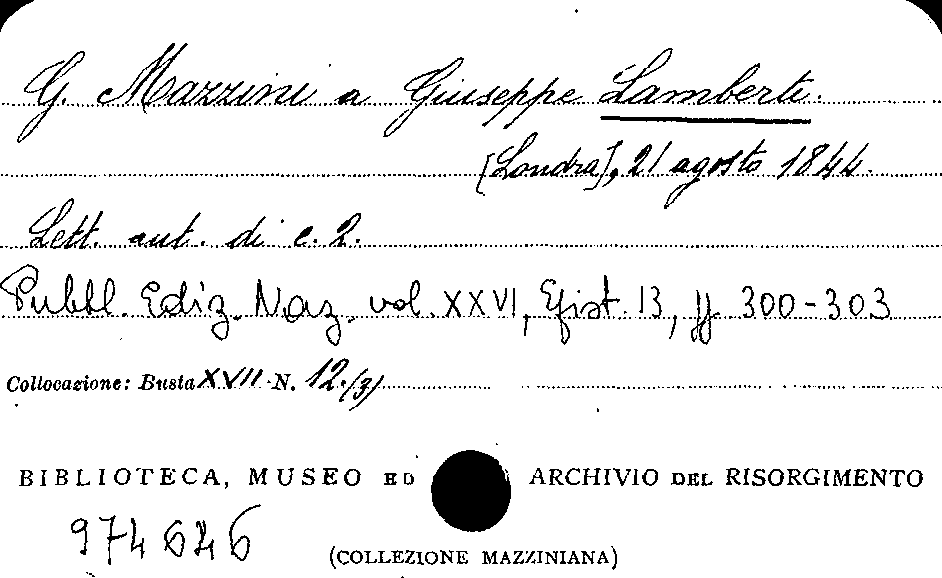 G. Mazzini a Giuseppe Lamberti.
[Londra], 21 agosto 1844.
Lett. aut. di c. 2.
Pubbl. Ediz. Naz. vol. XXVI, Epist. 13, pp. 300-303
Collocazione: Busta XVII N. 12./3)
BIBLIOTECA, MUSEO ED ARCHIVIO DEL RISORGIMENTO
974646
(COLLEZIONE MAZZINIANA)